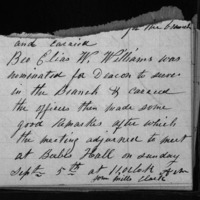 for the branch
and carried
Bro Elias W. Williams was
nominated for Deacon to serve
in the Branch & carried
the officers then made some
good remarks after which
the meeting adjourned to meet
at Balls Hall on sunday
Sept 5th at 11 oclock A.m
Wm Miller Clerk